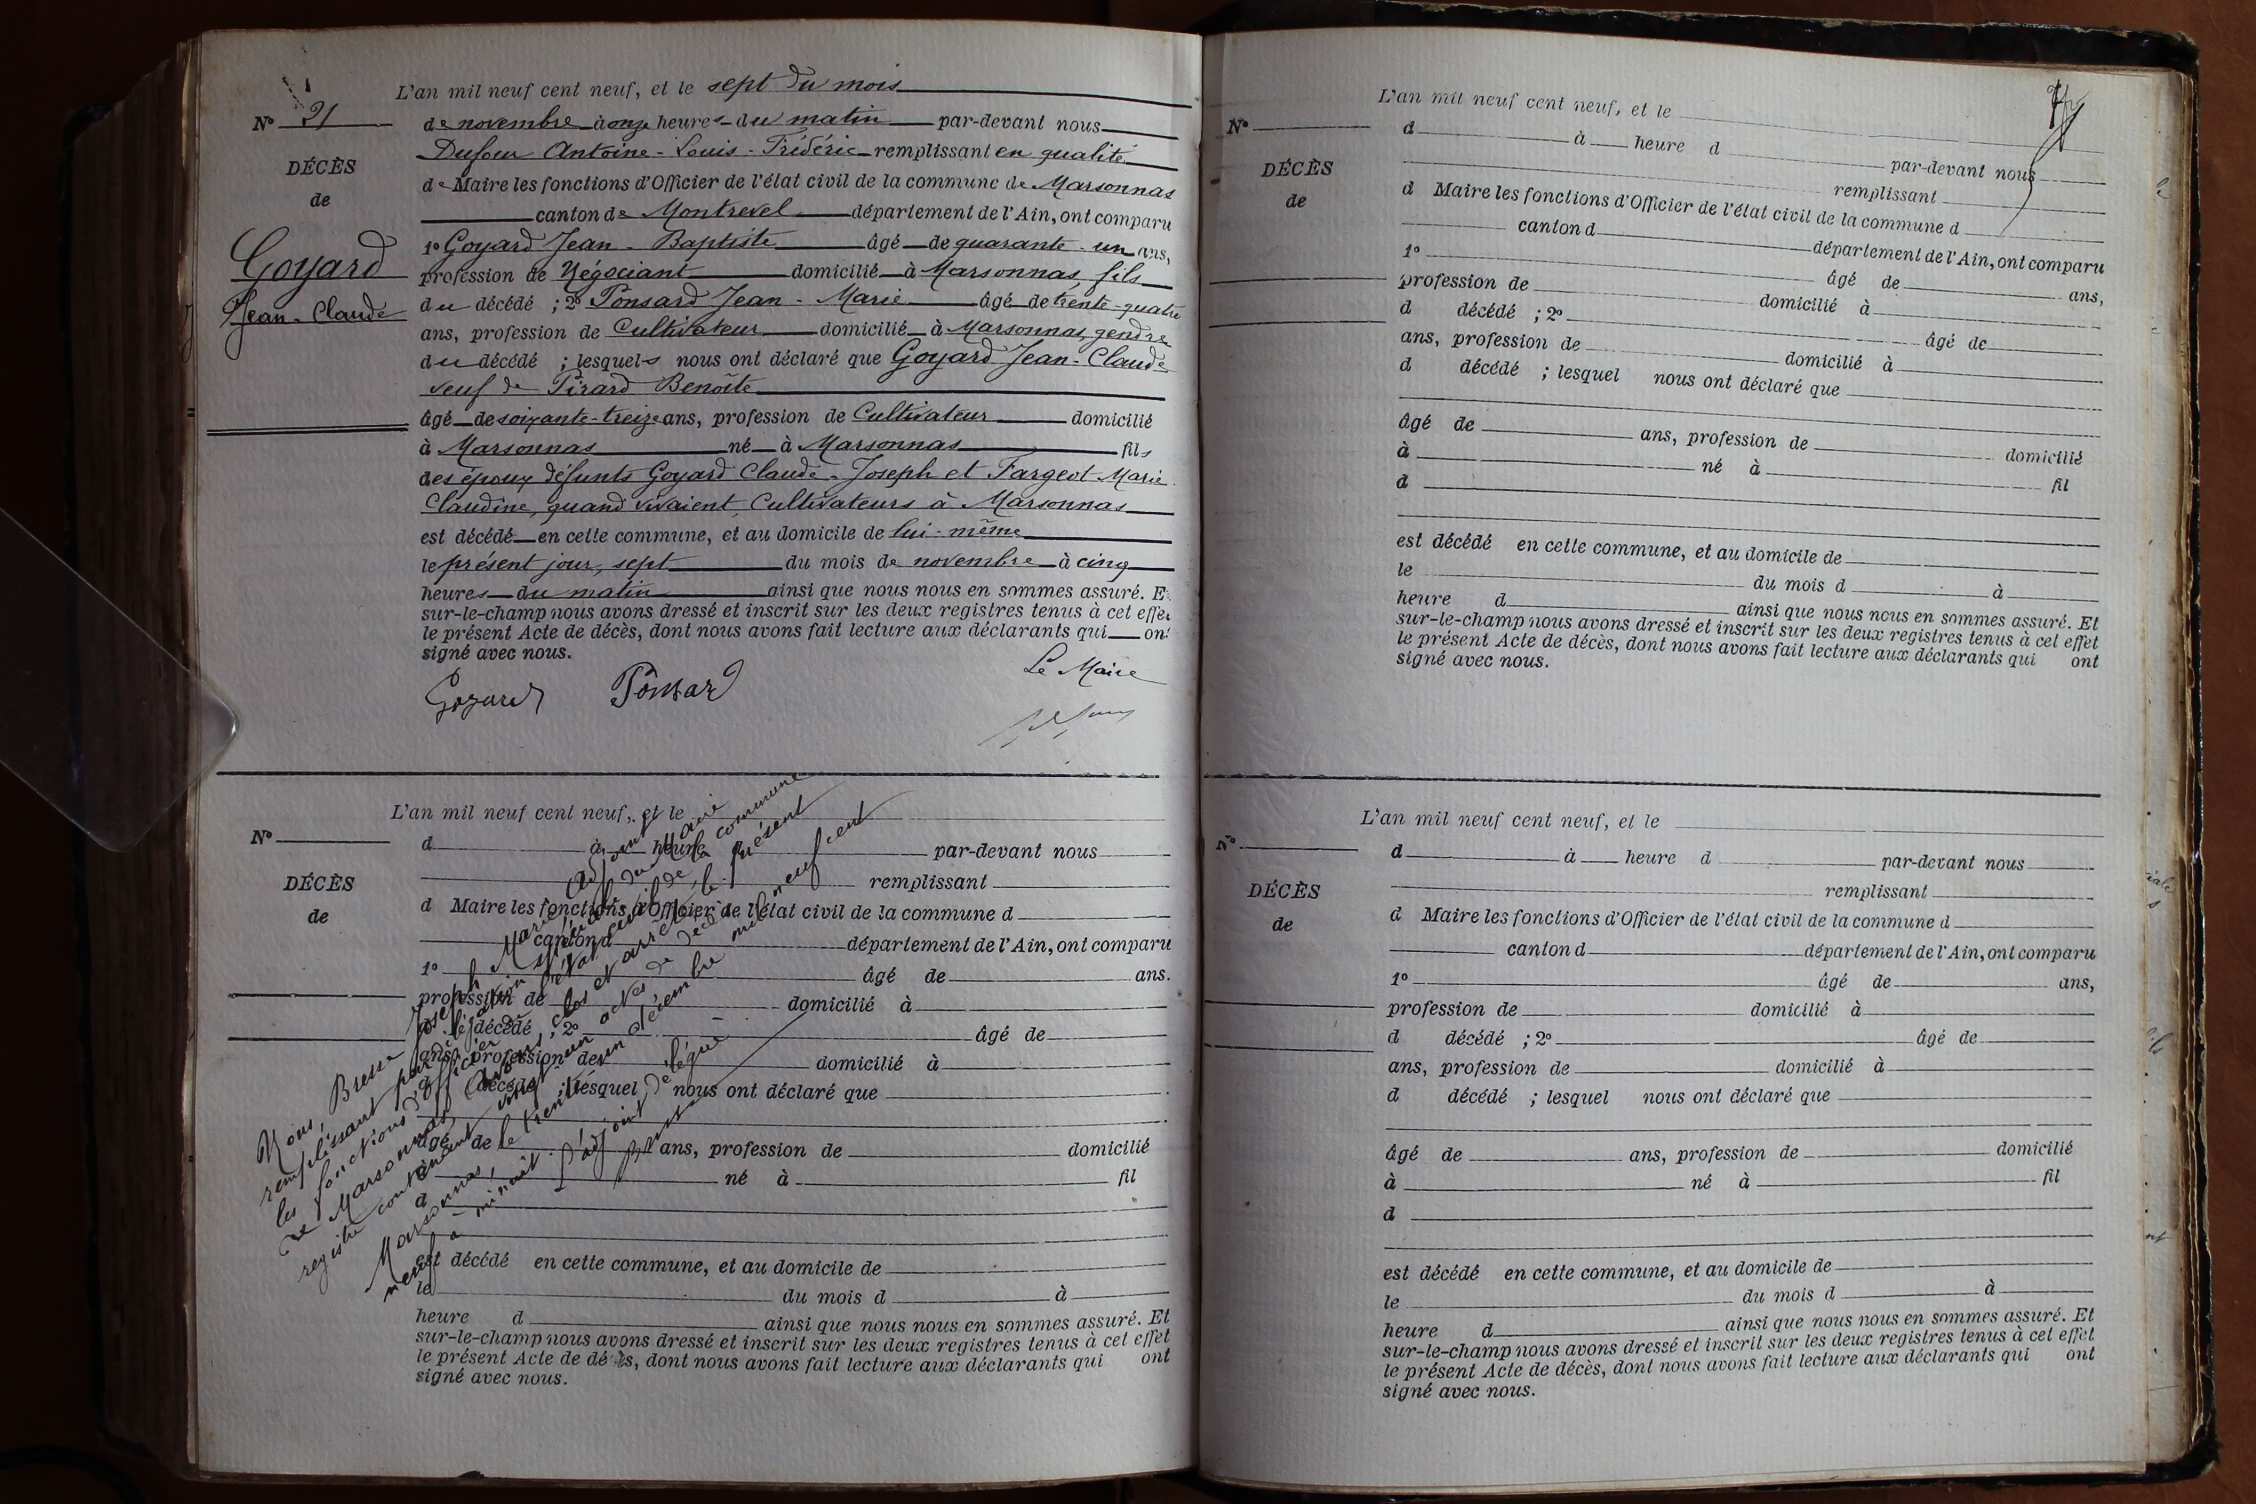 L'an mil neuf cent neuf, et le sept du mois
N° 21
de novembre à onze heures du matin par-devant nous
Dufour Antoine-Louis-Frédéric remplissant en qualité
DÉCÈS
de Maire les fonctions d'Officier de l'état civil de la commune de Marsonnas
de
canton de Montrevel département de l'Ain, ont comparu
Goyard
Jean-Claude
1° Goyard Jean-Baptiste âgé de quarante-un ans,
profession de Négociant domicilié à Marsonnas, fils
du décédé ; 2° Ponsard Jean-Marie âgé de trente-quatre
ans, profession de Cultivateur domicilié à Marsonnas, gendre
du décédé ; lesquels nous ont déclaré que Goyard Jean-Claude
veuf de Pirard Benoîte
âgé de soixante-treize ans, profession de Cultivateur domicilié
à Marsonnas né à Marsonnas fils
des époux défunts Goyard Claude-Joseph et Fargeot Marie
Claudine, quand vivaient, Cultivateurs à Marsonnas
est décédé en cette commune, et au domicile de lui-même
le présent jour, sept du mois de novembre à cinq
heures du matin ainsi que nous nous en sommes assuré. E
sur-le-champ nous avons dressé et inscrit sur les deux registres tenus à cet effe
le présent Acte de décès, dont nous avons fait lecture aux déclarants qui ont
signé avec nous.
Le Maire
Goyard Ponsard
L'an mil neuf cent neuf, et le
N°
d à heure par-devant nous
remplissant
DÉCÈS
de
d Maire les fonctions d'Officier de l'état civil de la commune d
canton d département de l'Ain, ont comparu
1° âgé de ans.
profession de domicilié à
décédé ; 2° âgé de
ans, profession de domicilié à
décédé ; lesquel nous ont déclaré que
âgé de ans, profession de domicilié
à né à fil
d
est décédé en cette commune, et au domicile de
le du mois d à
heure d ainsi que nous nous en sommes assuré. Et
sur-le-champ nous avons dressé et inscrit sur les deux registres tenus à cet effet
le présent Acte de décès, dont nous avons fait lecture aux déclarants qui ont
signé avec nous.
Nous, Joseph Marie Adjoint
remplissant par délégation spéciale du Maire
les fonctions d'officier de l'état civil de la commune
de Marsonnas, avons clos et arrêté le présent
registre contenant vingt un actes de décès
Marsonnas, le trente un décembre mil neuf cent
neuf à minuit. L'adjoint délégué
L'an mil neuf cent neuf, et le
N°
d à heure d par-devant nous
DÉCÈS
de
remplissant
d Maire les fonctions d'Officier de l'état civil de la commune d
canton d département de l'Ain, ont comparu
1° âgé de ans,
profession de domicilié à
d décédé ; 2° âgé de
ans, profession de domicilié à
d décédé ; lesquel nous ont déclaré que
âgé de ans, profession de domicilié
à né à fil
d
est décédé en cette commune, et au domicile de
le du mois d à
heure d ainsi que nous nous en sommes assuré. Et
sur-le-champ nous avons dressé et inscrit sur les deux registres tenus à cet effet
le présent Acte de décès, dont nous avons fait lecture aux déclarants qui ont
signé avec nous.
L'an mil neuf cent neuf, et le
N°
d à heure d par-devant nous
remplissant
DÉCÈS
de
d Maire les fonctions d'Officier de l'état civil de la commune d
canton d département de l'Ain, ont comparu
1° âgé de ans,
profession de domicilié à
d décédé ; 2° âgé de
ans, profession de domicilié à
d décédé ; lesquel nous ont déclaré que
âgé de ans, profession de domicilié
à né à fil
d
est décédé en cette commune, et au domicile de
le du mois d à
heure d ainsi que nous nous en sommes assuré. Et
sur-le-champ nous avons dressé et inscrit sur les deux registres tenus à cet effet
le présent Acte de décès, dont nous avons fait lecture aux déclarants qui ont
signé avec nous.